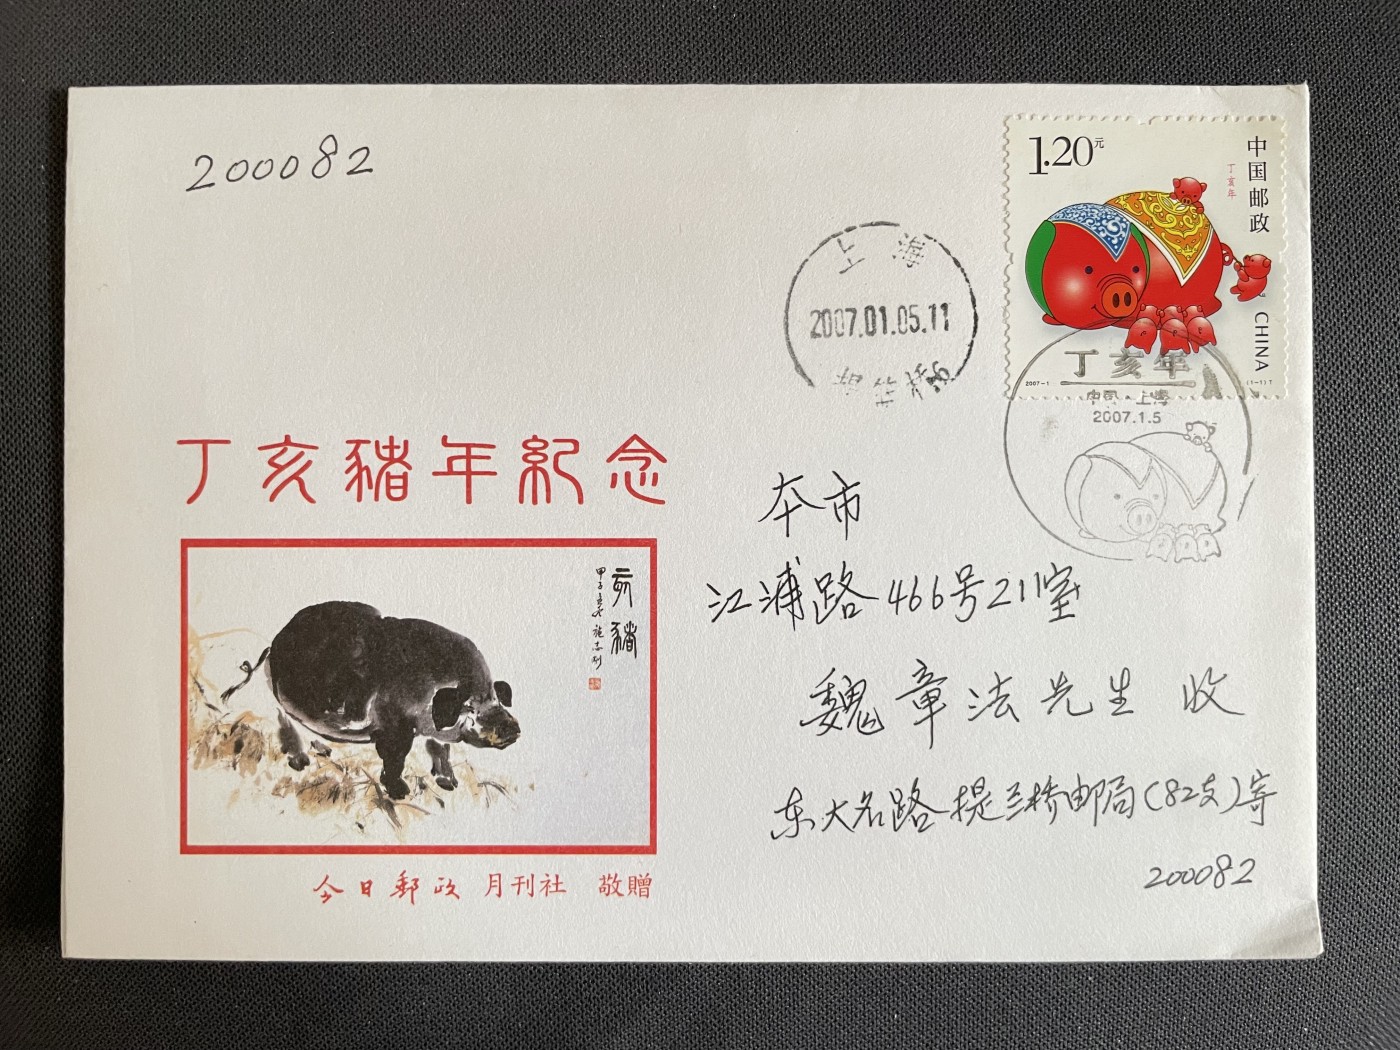 200082
1.20元
中国邮政
丁亥年
CHINA
2007-1
(1-1)T
2007.01.05.11
丁亥年
中国·上海
2007.1.5
丁亥豬年紀念
亥豬
施志刚
今日郵政 月刊社 敬贈
本市
江浦路466号211室
魏章法先生 收
东大名路提兰桥邮局(82支)寄
200082